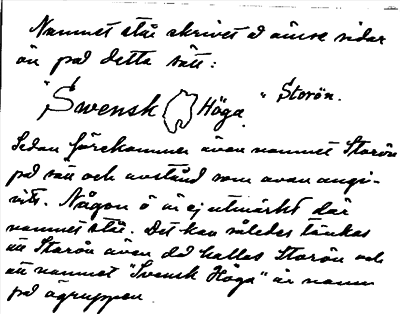 Namnet står skrivet å ömse sidor
ön på detta sätt:
"Swensk Höga. " Storön.
Sedan förekommer även namnet Storön
på sätt och avstånd som ovan angi-
vits. Någon ö är ej utmärkt där
namnet står. Det kan således tänkas
att Storön även då kallas Storön och
att namnet "Svensk Höga" är namn
på ögruppen.